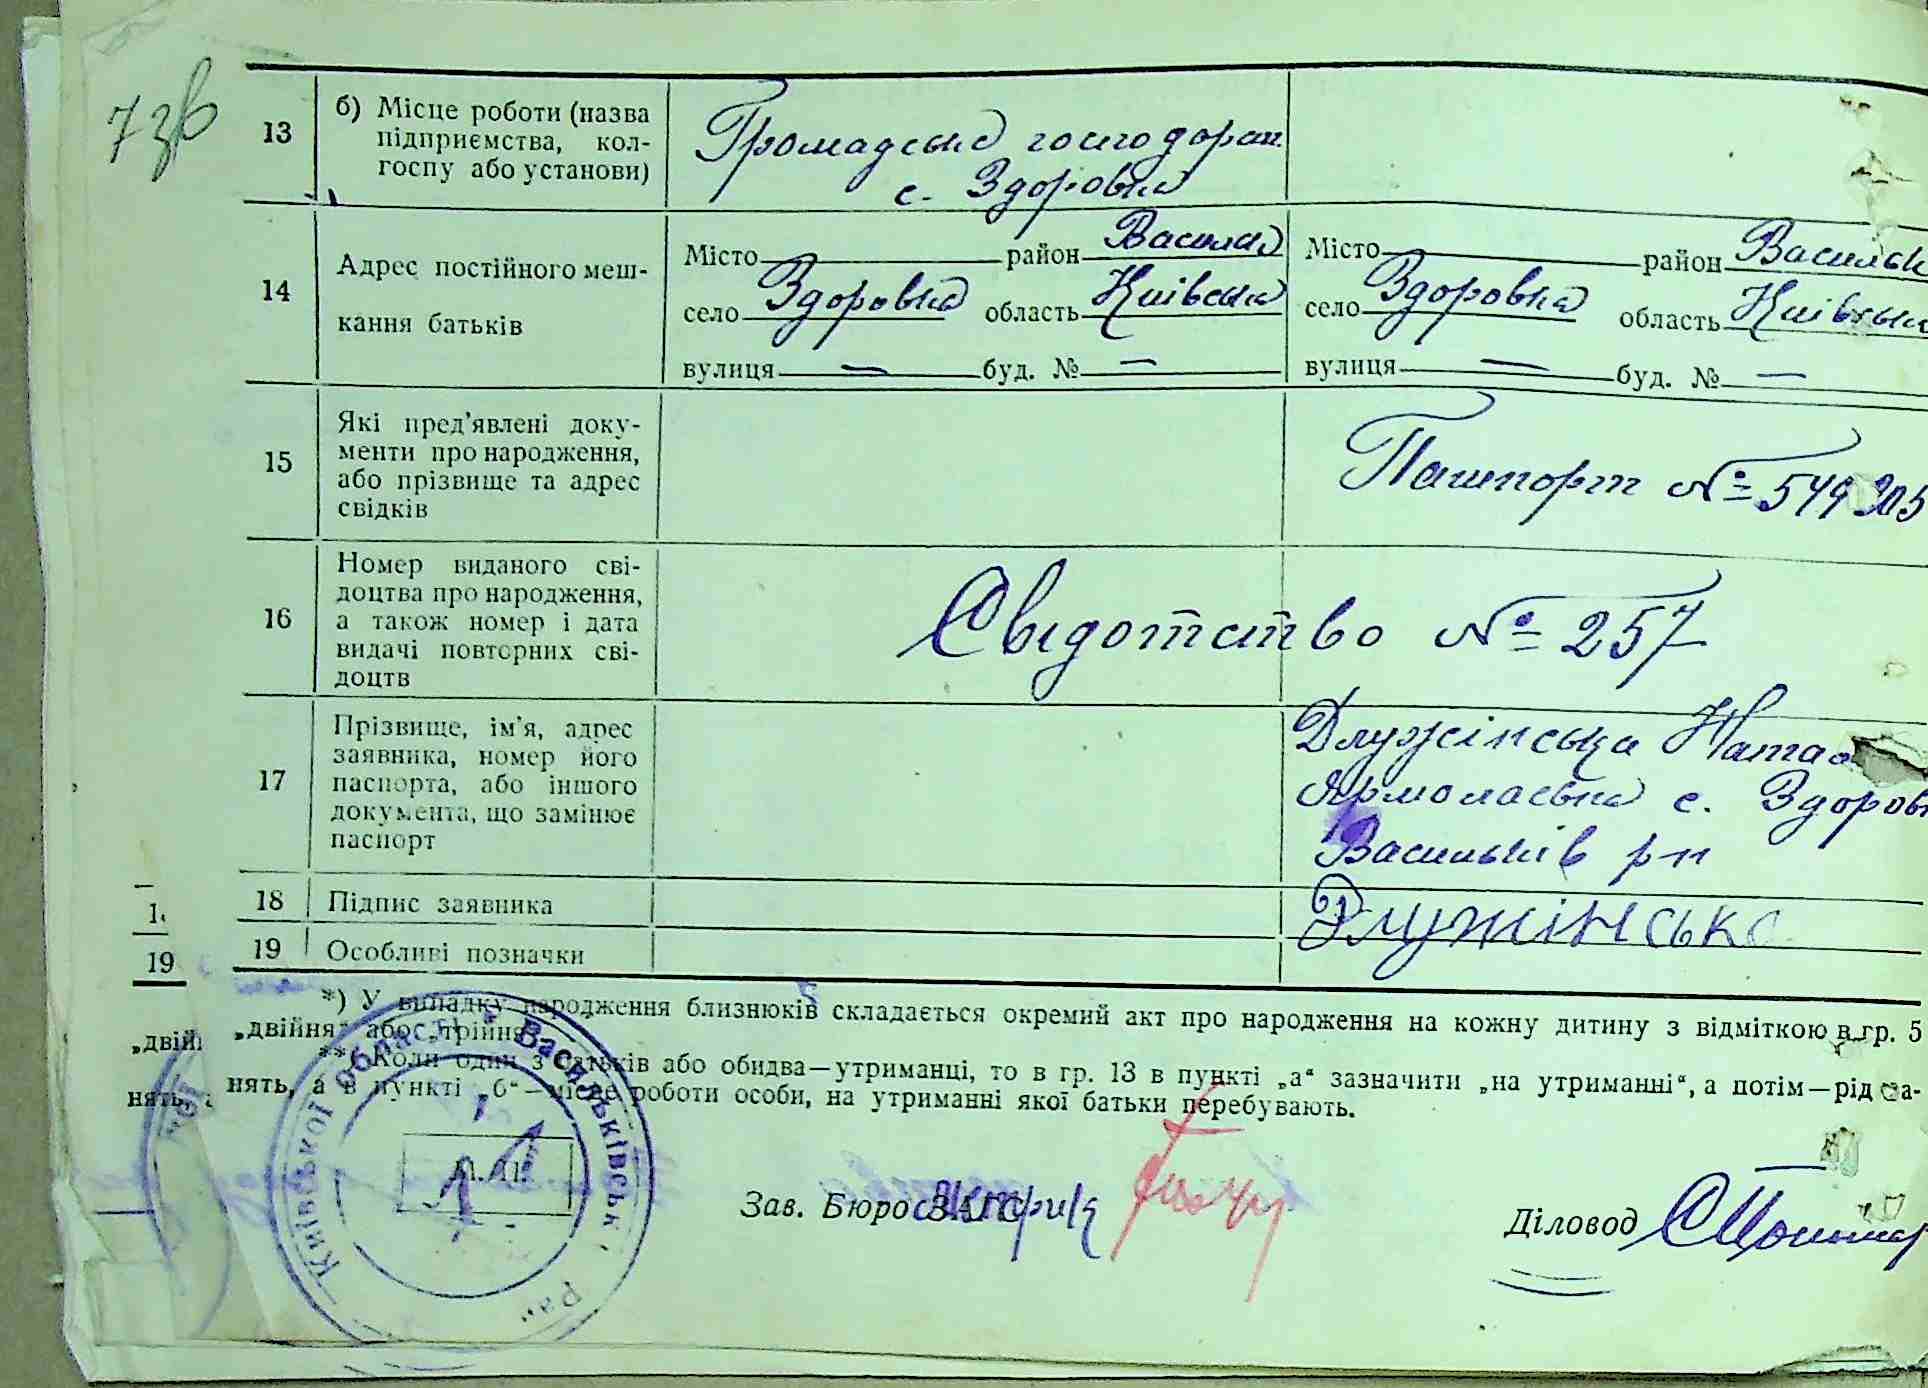 73б
13
б) Місце роботи (назва
підприємства, кол-
госпу або установи)
Громадське господорст.
с. Здоровка
14
Адрес постійного меш-
кання батьків
Місто район Василь Місто район Васильк
село Здоровка область Київська село Здоровка область Київська
вулиця — буд. № — вулиця — буд. № —
15
Які пред'явлені доку-
менти про народження,
або прізвище та адрес
свідків
Пашпорт №
16
Номер виданого сві-
доцтва про народження,
а також номер і дата
видачі повторних сві-
доцтв
Свідотство № 257
17
Прізвище, ім'я, адрес
заявника, номер його
паспорта, або іншого
документа, що замінює
паспорт
Длужінська Ната
Ярмолаєвна с. Здоров
Васильків р-н
18 Підпис заявника
Длужінська
19 Особливі позначки
19
*) У випадку народження близнюків складається окремий акт про народження на кожну дитину з відміткою в гр. 5
„двійня“ або „трійня“
**) Коли один з батьків або обидва—утриманці, то в гр. 13 в пункті „а“ зазначити „на утриманні“, а потім—рід за-
нять, а в пункті „б“—місце роботи особи, на утриманні якої батьки перебувають.
Київської області Васильківськ Рай
М.П.
Зав. Бюро ЗАГС
Діловод